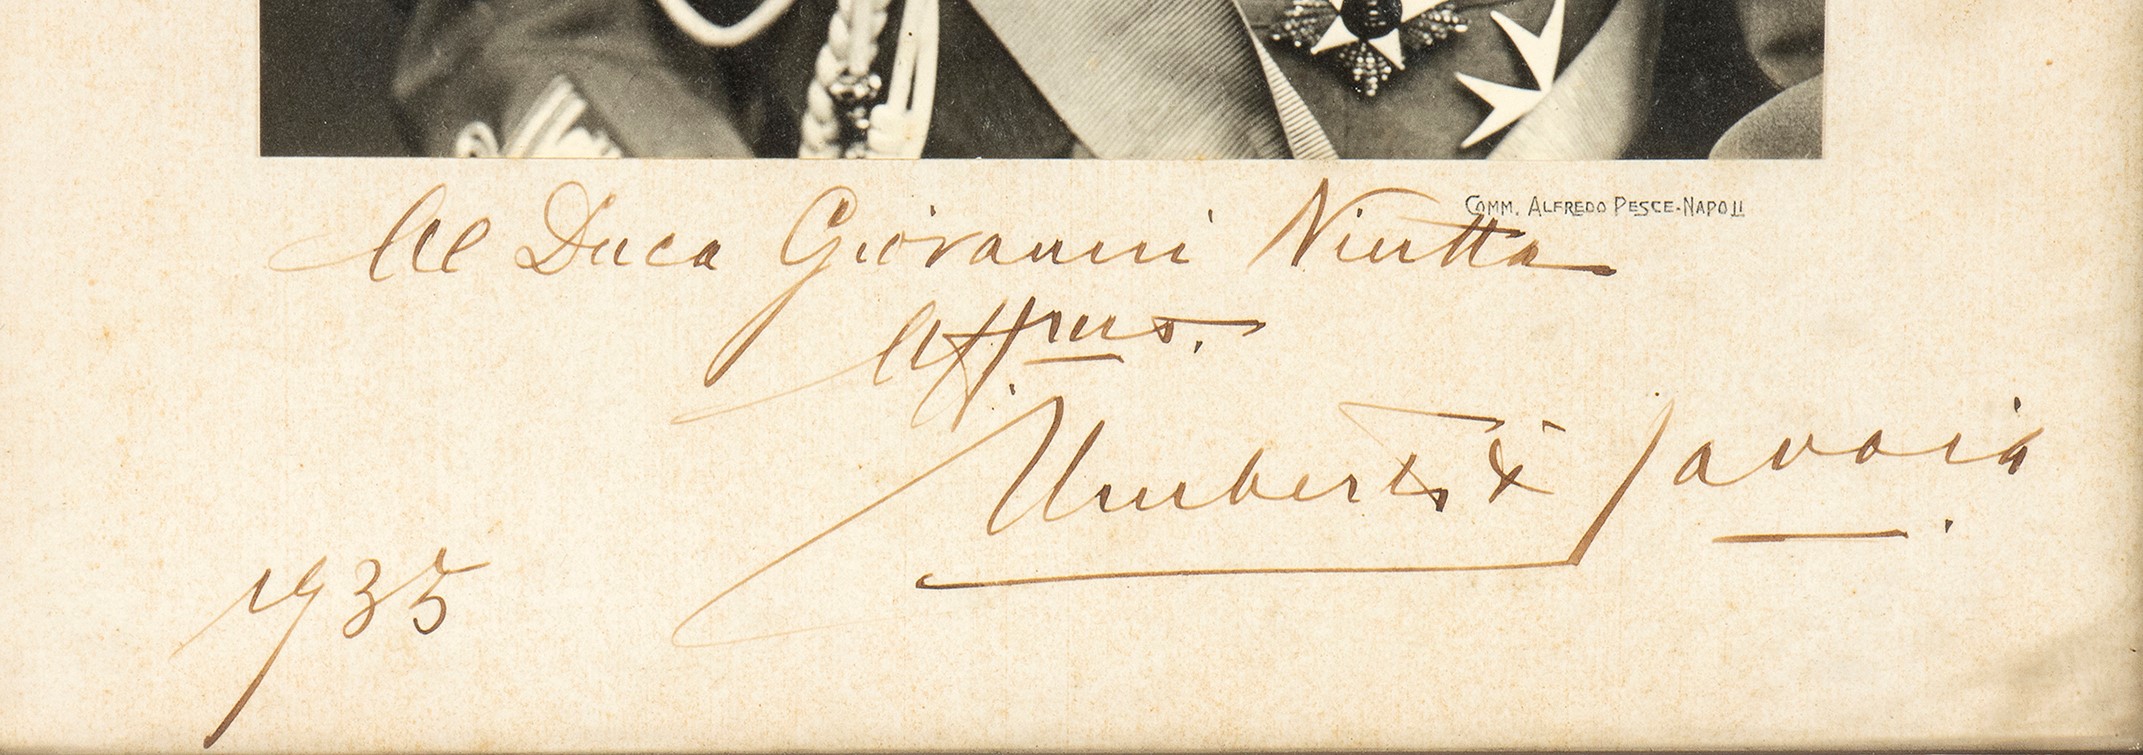 COMM. ALFREDO PESCE-NAPOLI
Al Duca Giovanni Niutta
Aff.mo.
Umberto di Savoia
1935